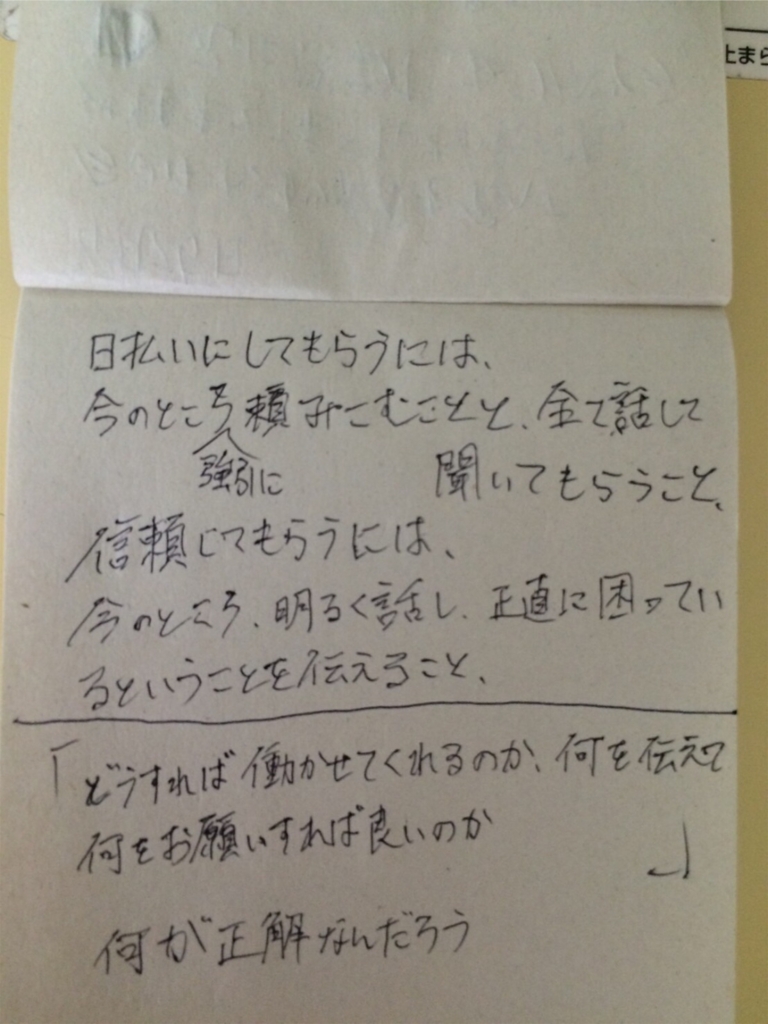 止まら
日払いにしてもらうには、
今のところ頼みこむことと、全て話して
強引に
聞いてもらうこと、
信頼してもらうには、
今のところ、明るく話し、正直に困ってい
るということを伝えること、
「どうすれば働かせてくれるのか、何を伝えて
何をお願いすれば良いのか」
何が正解なんだろう